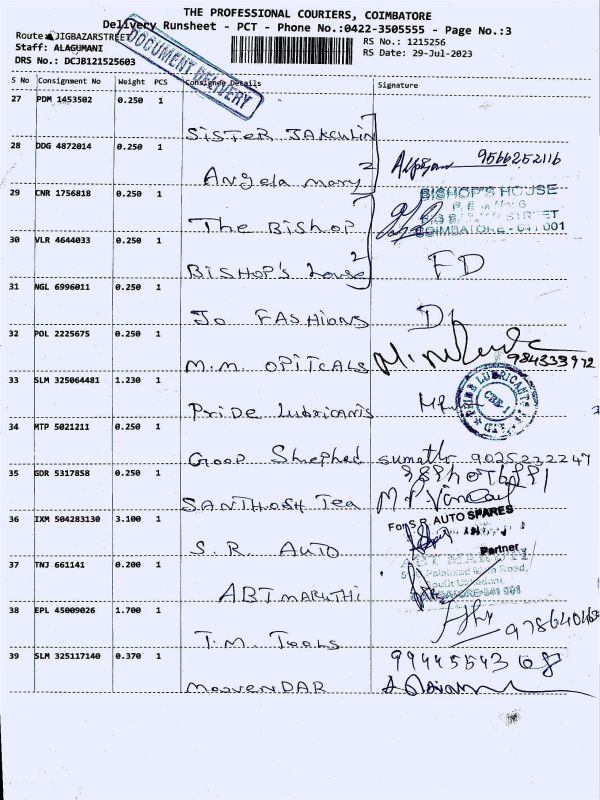 THE PROFESSIONAL COURIERS, COIMBATORE
Delivery Runsheet - PCT - Phone No.:0422-3505555 - Page No.:3
Route: JIGBAZARSTREET
Staff: ALAGUMANI
DRS No.: DCJB121525603
RS No.: 1215256
RS Date: 29-Jul-2023
DOCUMENT DELIVERY
S No Consignment No Weight PCS Consignee Details Signature
27 PDM 1453502 0.250 1
SISTER JAKCULIN
28 DDG 4872014 0.250 1
Angela mary 2 9566252116
29 CNR 1756818 0.250 1
BISHOP'S HOUSE
The Bishop
COIMBATORE - 641 001
30 VLR 4644033 0.250 1
BISHOP'S house 2 FD
31 NGL 6996011 0.250 1
Jo FASHIONS
32 POL 2225675 0.250 1
M.M OPITCALS 984333912
33 SLM 325064481 1.230 1
PRIDE LUBRICANTS
CBE-1
Pride Lubricants
34 MTP 5021211 0.250 1
Goop Shephed sumathi 9025232247
35 GDR 5317858 0.250 1
SANTHOSH Tea
36 IXM 504283130 3.100 1
For S.R. AUTO SPARES
S.R. AUTO
Partner
37 TNJ 661141 0.200 1
ABT MARUTHI
ABT MARUTHI
38 EPL 45009026 1.700 1
T.M. Tools
39 SLM 325117140 0.370 1
9944555436 08
moovenDAR